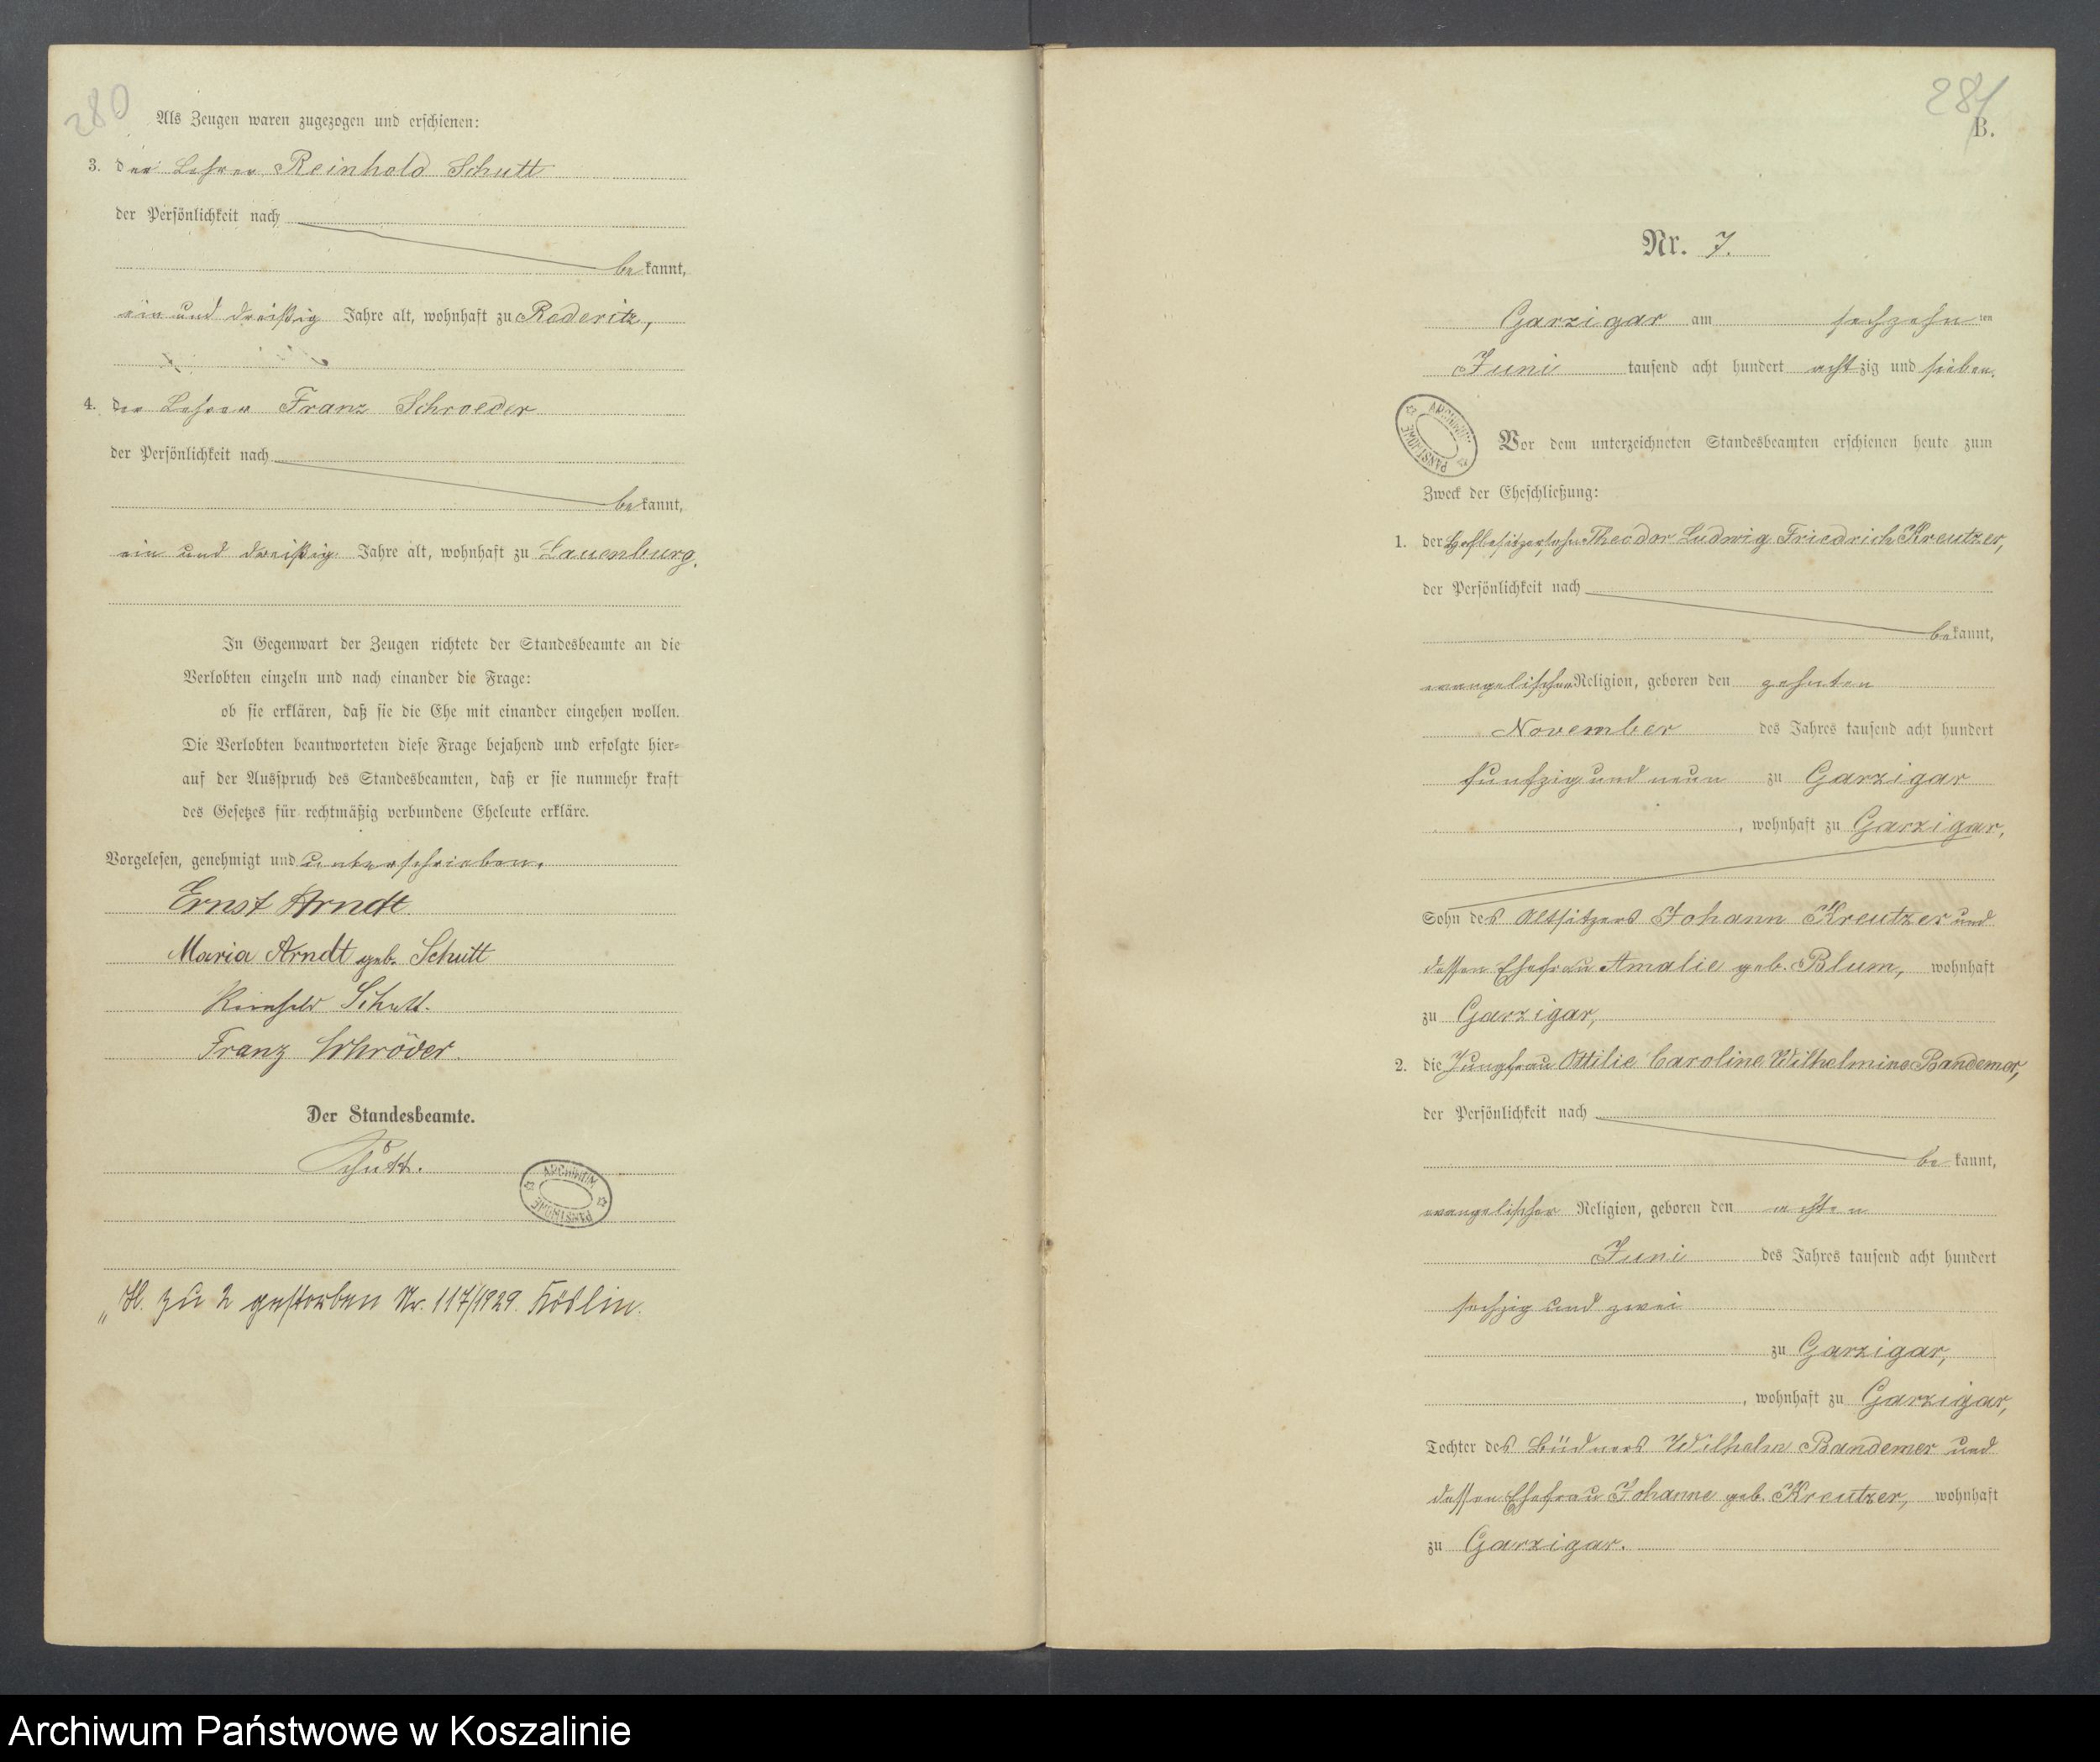 280
Als Zeugen waren zugezogen und erschienen:
3. der Lehrer Reinhold Schutt
der Persönlichkeit nach
bekannt,
ein und dreißig Jahre alt, wohnhaft zu Rederitz,
4. der Lehrer Franz Schroeder
der Persönlichkeit nach
bekannt,
ein und dreißig Jahre alt, wohnhaft zu Lauenburg.
In Gegenwart der Zeugen richtete der Standesbeamte an die
Verlobten einzeln und nach einander die Frage:
ob sie erklären, daß sie die Ehe mit einander eingehen wollen.
Die Verlobten beantworteten diese Frage bejahend und erfolgte hier-
auf der Ausspruch des Standesbeamten, daß er sie nunmehr kraft
des Gesetzes für rechtmäßig verbundene Eheleute erkläre.
Vorgelesen, genehmigt und unterschrieben.
Ernst Arndt
Maria Arndt geb. Schutt
Reinhold Schutt.
Franz Schröder.
Der Standesbeamte.
Schutt.
ARCHIWUM PAŃSTWOWE
zu 2 gestorben Nr. 117/1929. Köslin.
281
B.
Nr. 7.
Garzigar am sechzehnten
Juni tausend acht hundert achtzig und sieben.
ARCHIWUM PAŃSTWOWE
Vor dem unterzeichneten Standesbeamten erschienen heute zum
Zweck der Eheschließung:
1. der Hofbesitzersohn Theodor Ludwig Friedrich Kreutzer,
der Persönlichkeit nach
bekannt,
evangelischer Religion, geboren den zehnten
November des Jahres tausend acht hundert
funfzig und neun zu Garzigar
, wohnhaft zu Garzigar,
Sohn des Altsitzers Johann Kreutzer und
dessen Ehefrau Amalie geb. Blum, wohnhaft
zu Garzigar,
2. die Jungfrau Ottilie Caroline Wilhelmine Bandemer,
der Persönlichkeit nach
bekannt,
evangelischer Religion, geboren den achten
Juni des Jahres tausend acht hundert
sechzig und zwei
zu Garzigar,
, wohnhaft zu Garzigar,
Tochter des Büdners Wilhelm Bandemer und
dessen Ehefrau Johanne geb. Kreutzer, wohnhaft
zu Garzigar.
Archiwum Państwowe w Koszalinie